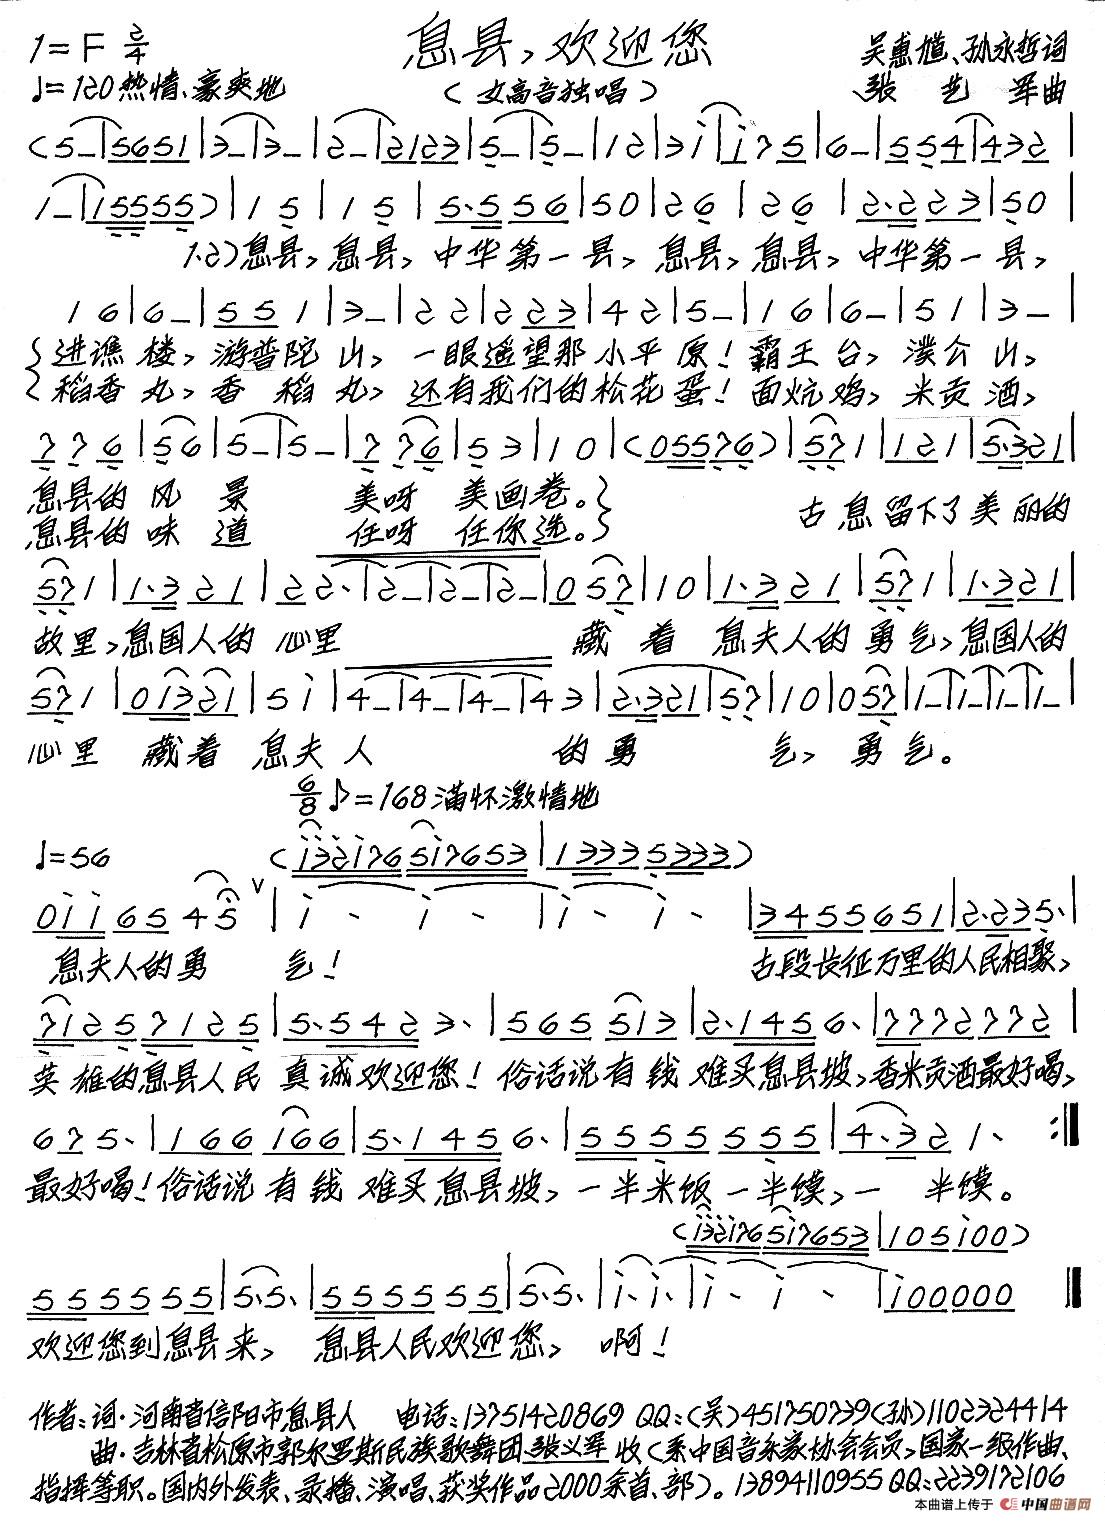 息县，欢迎您
1=F 2/4
吴惠馗、孙永哲词
♩=120热情、豪爽地
（女高音独唱）
张艺军曲
(5–|5651|3–|3–|2–|2123|5–|5–|12|3i|i75|6–|554|432|
1–|15555)|15|15|5·556|50|26|26|2·223|50|
1.2)息县，息县，中华第一县，息县，息县，中华第一县，
16|6–|551|3–|22|223|42|5–|16|6–|51|3–|
进谯楼，游普陀山，一眼遥望那小平原！霸王台，濮公山，
稻香丸，香稻丸，还有我们的松花蛋！面炕鸡，米贡酒，
776|56|5–|5–|776|53|10|(05576)|571|121|5·321|
息县的风景美呀美画卷。
古息留下了美丽的
息县的味道任呀任你选。
571|1·321|22·|2–|2–|2–|057|10|1·321|571|1·321|
故里，息国人的心里藏着息夫人的勇气，息国人的
571|01321|5i|4–|4–|4–|43|2·321|57|10|057|1–|1–|1–|1–|
心里藏着息夫人的勇气，勇气。
6/8 ♪=168满怀激情地
♩=56
(i32i76 5i7653|1333 5333)
0ii 65 45 ∨|i · i ·|i · i ·|3455651|2·235·|
息夫人的勇气！古段长征万里的人民相聚，
7125 7125|5·5423·|565513|2·1456·|7772772|
英雄的息县人民真诚欢迎您！俗话说有钱难买息县坡，香米贡酒最好喝，
675·|166166|5·1456·|5555555|4·321·:‖
最好喝！俗话说有钱难买息县坡，一半米饭一半馍，一半馍。
(i32i76 5i7653|105i00)
555555|5·5·|555555|5·5·|i·i·|i · i ·|i00000‖
欢迎您到息县来，息县人民欢迎您，啊！
作者：词·河南省信阳市息县人 电话：13751420869 QQ：(吴)451750739(孙)1102324414
曲·吉林省松原市郭尔罗斯民族歌舞团·张义军收(系中国音乐家协会会员，国家一级作曲、
指挥等职。国内外发表、录播、演唱、获奖作品2000余首、部)。13894110955 QQ：2239172106
本曲谱上传于 中国曲谱网